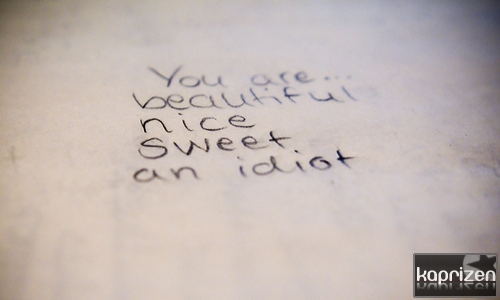 You are...
beautiful
nice
sweet
an idiot
kaprizen